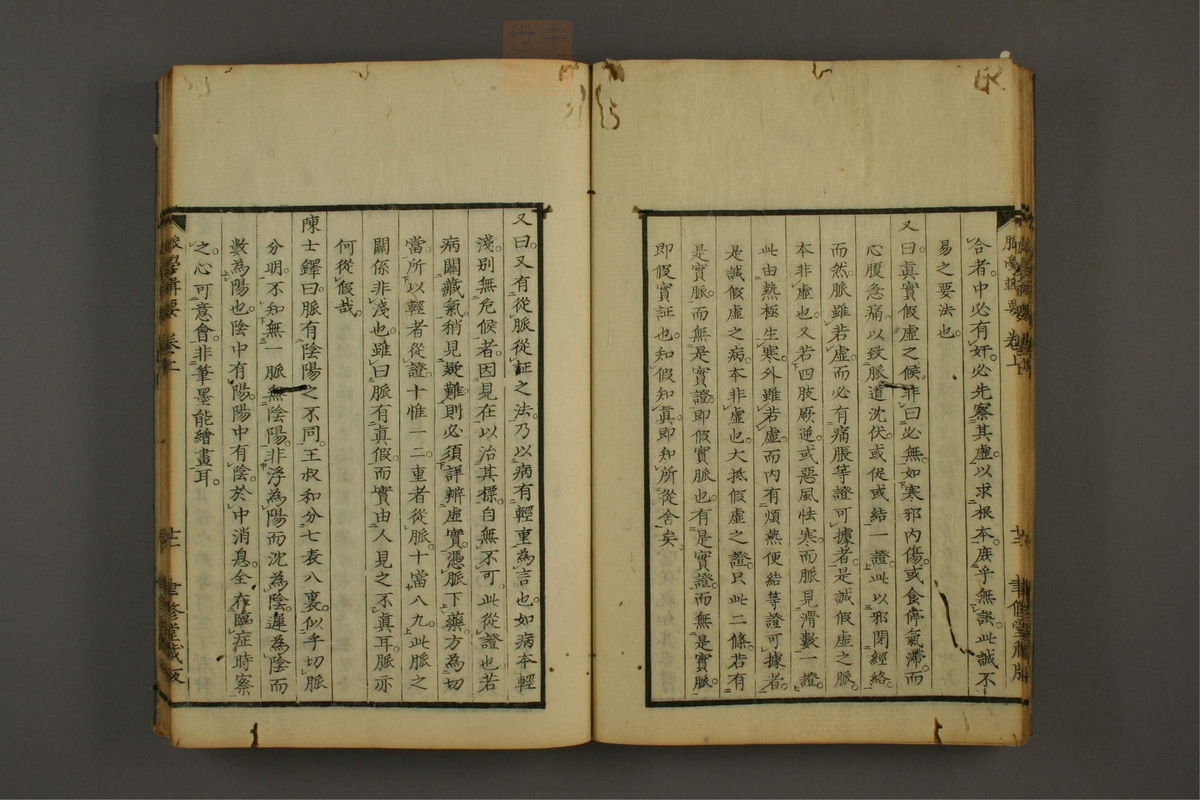 合者。中必有奸。必先察其虛。以求根本。庶乎無誤。此誠不
易之要法也。
又曰。眞實假虛之候。非曰必無。如寒邪內傷。或食停氣滯。而
心腹急痛。以致脈道沈伏。或促或結一證。此以邪閉經絡。
而然。脈雖若虛。而必有痛脹等證可據者。是誠假虛之脈。
本非虛也。又若四肢厥逆。或惡風怯寒。而脈見滑數一證。
此由熱極生寒。外雖若虛。而內有煩熱便結等證可據者。
是誠假虛之病。本非虛也。大抵假虛之證。只此二條。若有
是實脈。而無是實證。即假實脈也。有是實證。而無是實脈。
即假實証也。知假知眞。即知所從舍矣。
又曰。又有從脈從証之法。乃以病有輕重爲言也。如病本輕
淺。別無危候者。因見在以治其標。自無不可。此從證也。若
病關藏氣。稍見疑難。則必須詳辨虛實。憑脈下藥。方爲切
當。所以輕者從證。十惟一二。重者從脈。十當八九。此脈之
關係非淺也。雖曰脈有眞假。而實由人見之不眞耳。脈亦
何從假哉。
陳士鐸曰。脈有陰陽之不同。王叔和分七表八裏。似乎切脈
分明。不知無一脈無陰陽。非浮爲陽而沈爲陰。遲爲陰而
數爲陽也。陰中有陽。陽中有陰。於中消息。全在臨症時察
之。心可意會。非筆墨能繪畫耳。
脈學輯要 卷上
聿修堂藏版